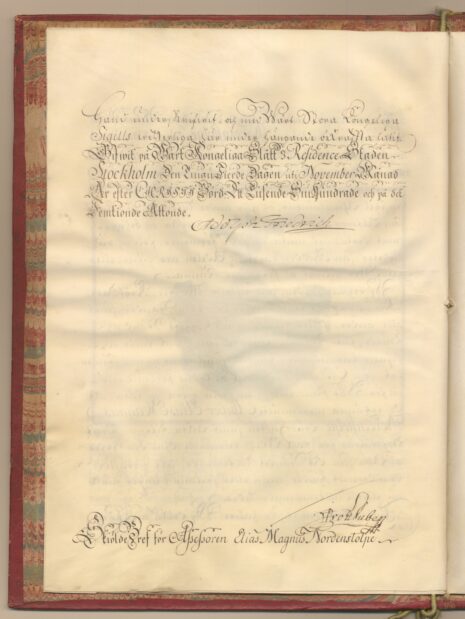 Hand underskrifvit, och med Wårt Stora Kongeliga
Sigells
Gifwit på Wårt Kongeliga Slått i Residence Staden
Stockholm den Dagen uti November Månad
År efter CHRISTI Börd Ett Tusende Siuhundrade och på det
Femtionde Attonde.
Adolph Friedrich
Skiölde Bref för Assessoren Elias Magnus Nordenstolpe